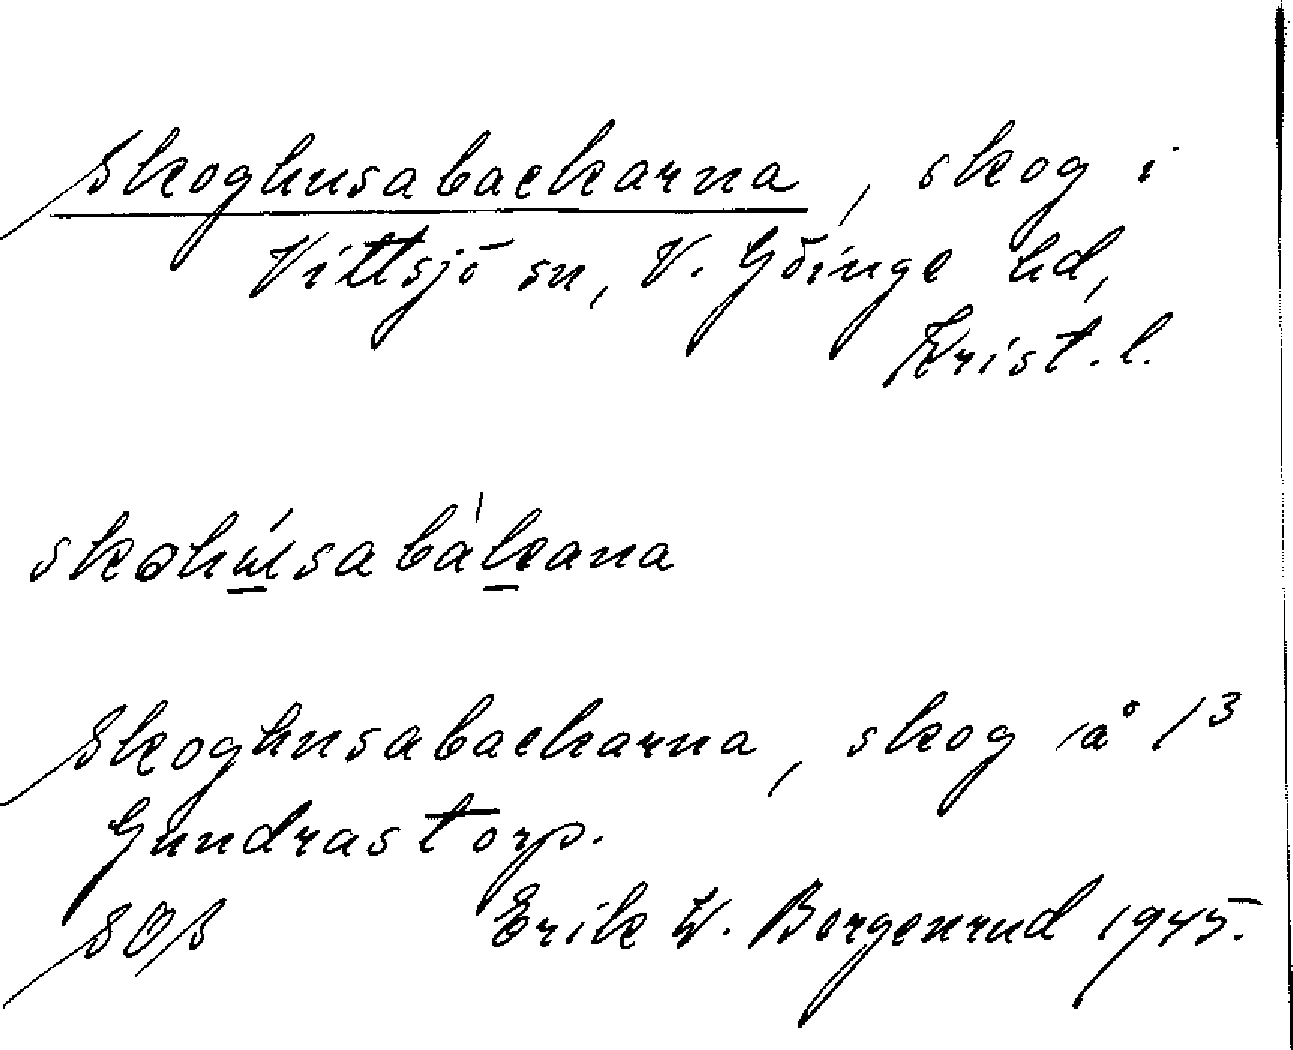 Skoghusabackarna, skog i
Vittsjö sn, V. Göinge hd,
Krist. l.
skohúsabàkana
Skoghusabackarna, skog å 1³
Gundrastorp.
SOS Erik W. Borgenrud 1945.